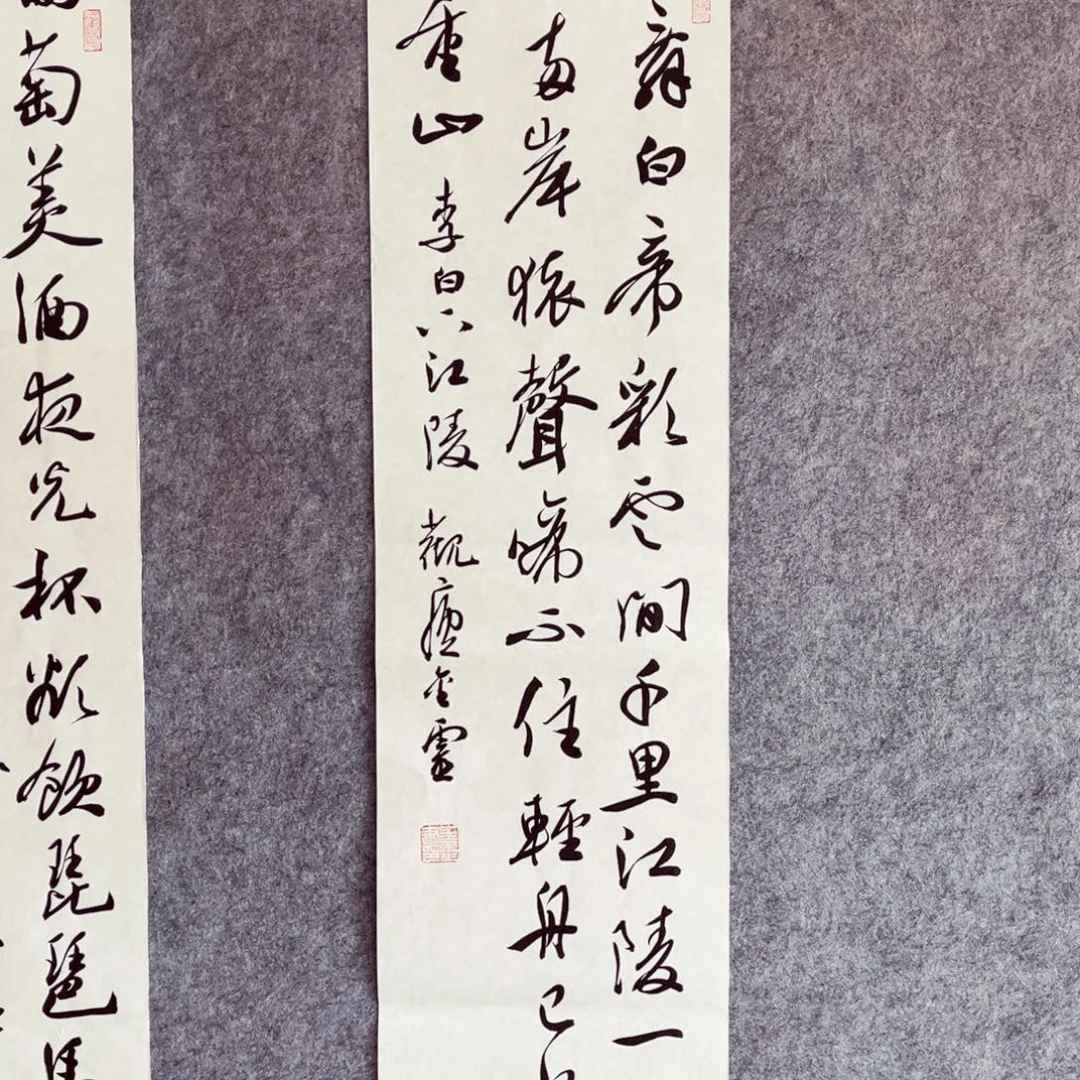 辭白帝彩雲間千里江陵一
兩岸猿聲啼不住輕舟已
重山
李白下江陵
萄美酒夜光杯欲飲琵琶馬